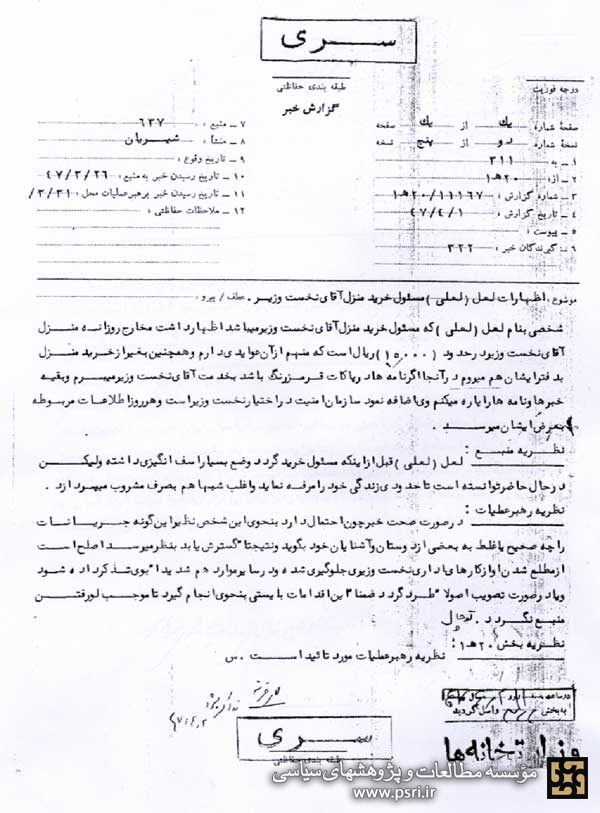 ســری
طبقه بندی حفاظتی
گزارش خبر
درجه فوریت
صفحه شماره يك از يك صفحه
نسخه شماره دو از پنج نسخه
۱ ـ به ۳۱۱
۲ ـ از: ۲۰هـ۱
۳ ـ شماره گزارش: ۱۱۱۶۷/۲۰هـ۱
۴ ـ تاریخ گزارش: ۴۷/۴/۱
۵ ـ پیوست:
۶ ـ گیرندگان خبر: ۳۲۲
۷ ـ منبع: ۶۳۷
۸ ـ منشأ: شیریان
۹ ـ تاریخ وقوع:
۱۰ ـ تاریخ رسیدن خبر به منبع: ۴۷/۳/۲۶
۱۱ ـ تاریخ رسیدن خبر برهبرعملیات محل: /۳/۳۱
۱۲ ـ ملاحظات حفاظتی:
موضوع: اظهارات لعل (لعلی) مسئول خرید منزل آقای نخست وزیر. عطف / پیرو:
شخصی بنام لعل (لعلی) که مسئول خرید منزل آقای نخست وزیر میباشد اظهار داشت مخارج روزانه منزل
آقای نخست وزیر در حدود (۱۵۰۰۰) ریال است که منهم از آن عوایدی دارم و همچنین بغیر از خرید منزل
بدفتر ایشان هم میروم در آنجا اگر نامه ها در پاکات قرمز رنگ باشد بخدمت آقای نخست وزیر میبرم و بقیه
خبرها و نامه ها را پاره میکنم وی اضافه نمود سازمان امنیت در اختیار نخست وزیر است و هر روز اطلاعات مربوطه
بعرض ایشان میرسد.
نظریه منبع: لعل (لعلی) قبل از اینکه مسئول خرید گردد وضع بسیار اسف انگیزی داشته ولیکن
در حال حاضر توانسته است تا حدودی زندگی خود را مرفه نماید و اغلب شبها هم بصرف مشروب میپردازد.
نظریه رهبر عملیات: در صورت صحت خبر چون احتمال دارد بنحوی این شخص نظیر این گونه جریانات
را چه صحیح یا غلط به بعضی از دوستان و آشنایان خود بگوید و نتیجتا" گسترش یابد بنظر میرسد اصلح است
از مطلع شدن او از کارهای اداری نخست وزیری جلوگیری شده و در سایر موارد هم شدیدا" بوی تذکر داده شود
و یا در صورت تصویب اصولا" طرد گردد ضمنا" این اقدامات بایستی بنحوی انجام گیرد تا موجب لو رفتن
منبع نگردد.
نظریه بخش ۲۰هـ۱: نظریه رهبر عملیات مورد تائید است. س
ســری
طبقه بندی حفاظتی
واصل گردید
مؤسسه مطالعات و پژوهشهای سیاسی
www.psri.ir